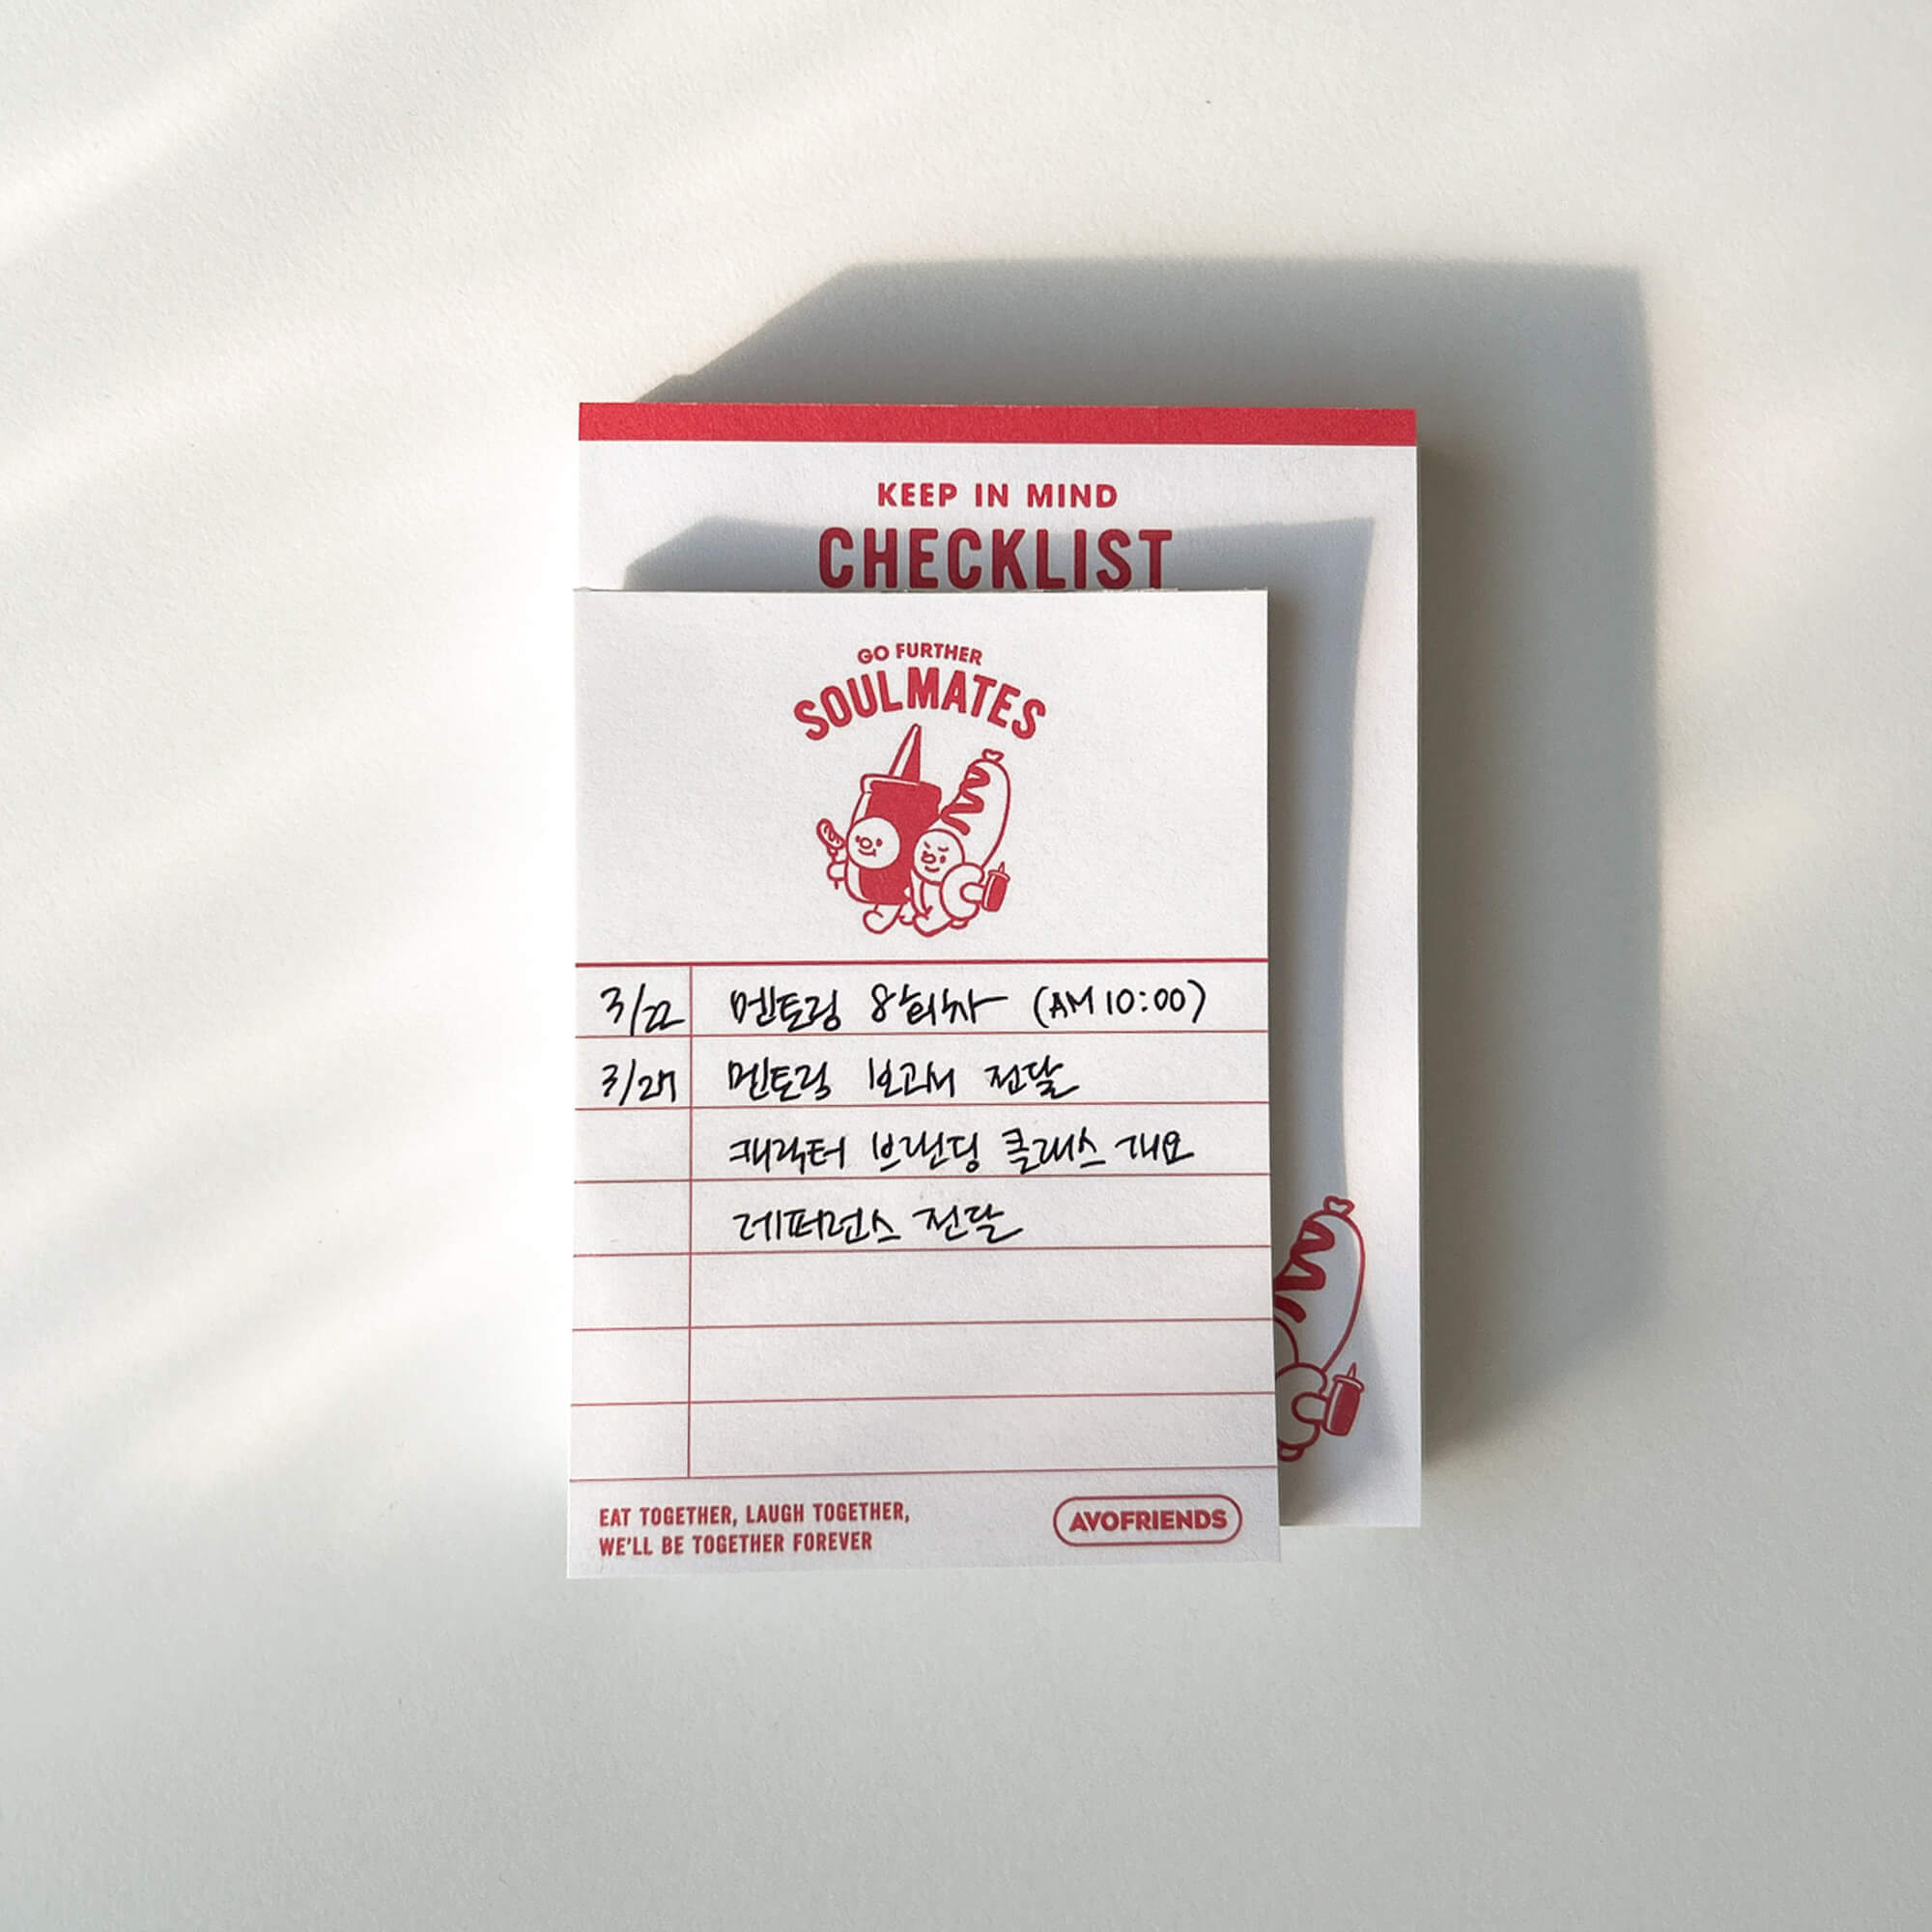 KEEP IN MIND
CHECKLIST
GO FURTHER
SOULMATES
3/22 멘토링 8회차 (AM 10:00)
3/27 멘토링 보고서 전달
캐릭터 브랜딩 클래스 개요
레퍼런스 전달
EAT TOGETHER, LAUGH TOGETHER,
WE'LL BE TOGETHER FOREVER
AVOFRIENDS